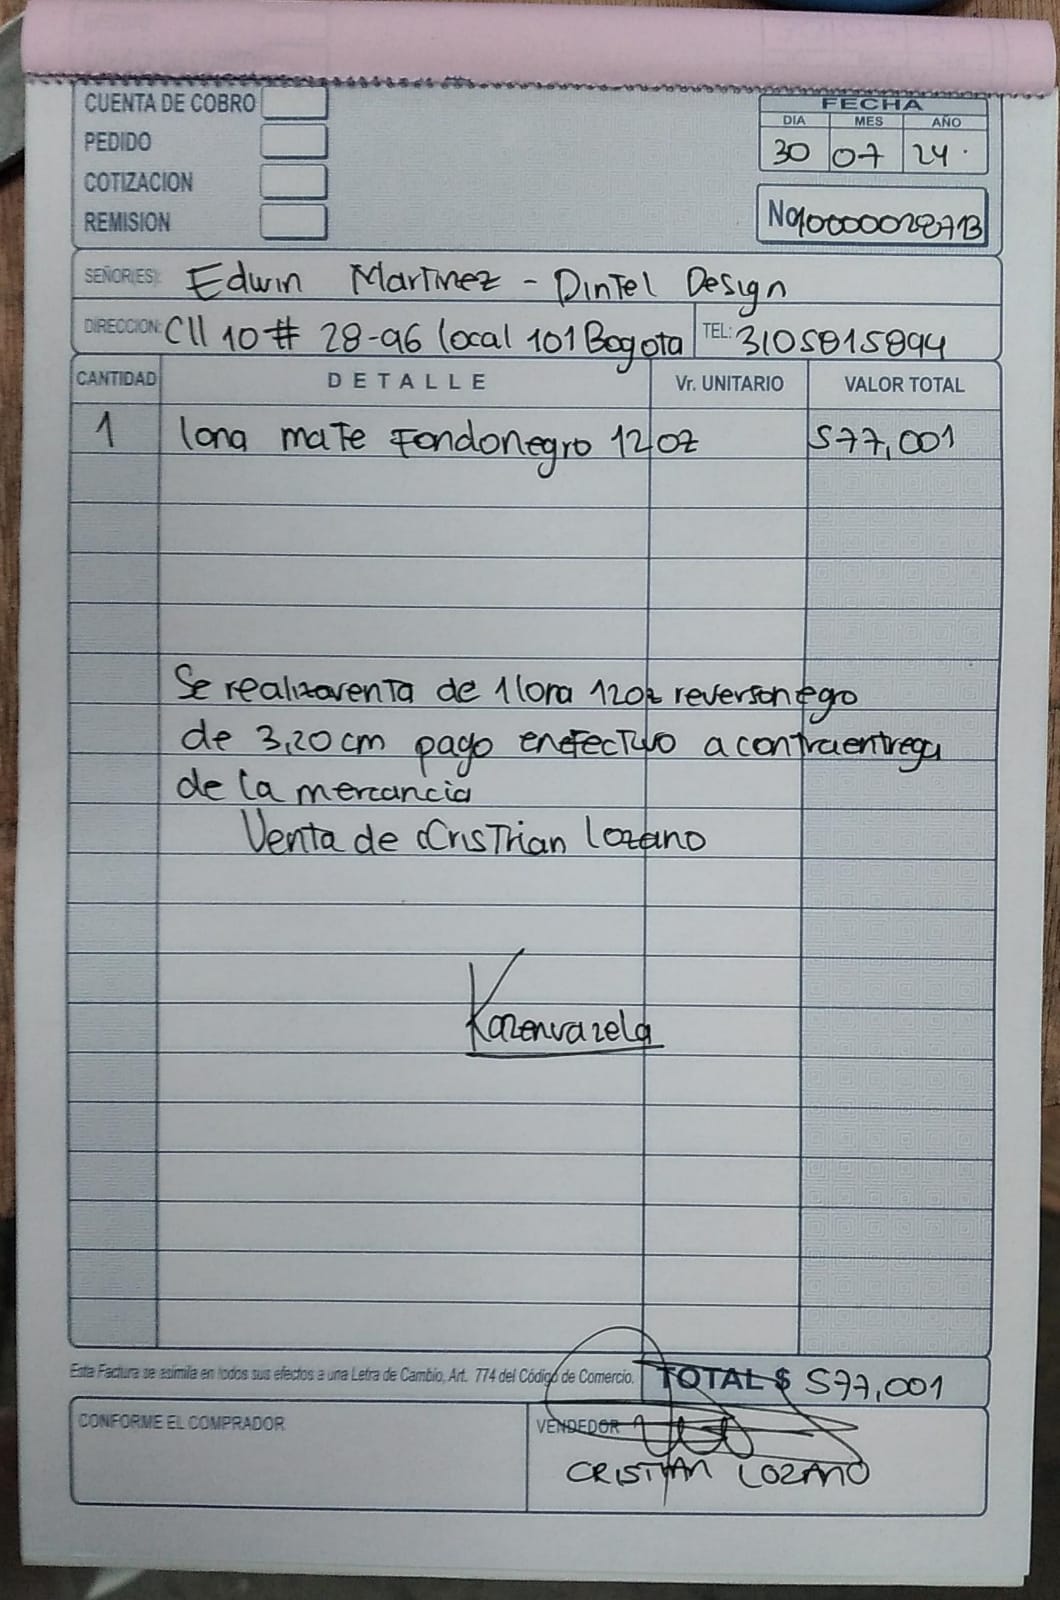 CUENTA DE COBRO
PEDIDO
COTIZACION
REMISION
FECHA
DIA MES AÑO
30 07 24
No 10000028713
SEÑOR(ES): Edwin Martinez - Dintel Design
DIRECCION: Cll 10 # 28-96 local 101 Bogota TEL: 3105815894
CANTIDAD DETALLE Vr. UNITARIO VALOR TOTAL
1 lona mate Fondonegro 12 oz 577,001
Se realiza venta de 1 lona 12oz reverso negro
de 3,20 cm pago en efectivo a contraentrega
de la mercancia
Venta de Cristian Lozano
Karenvarela
Esta Factura se asimila en todos sus efectos a una Letra de Cambio, Art. 774 del Código de Comercio.
TOTAL $ 577,001
CONFORME EL COMPRADOR
VENDEDOR
CRISTIAN LOZANO